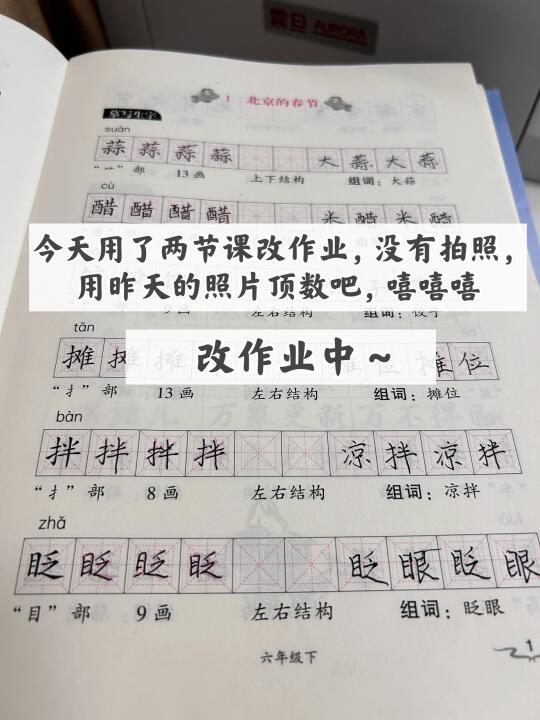 震旦 AURORA
1 北京的春节
摹写生字
suàn
蒜 蒜 蒜 蒜 大 蒜 大 蒜
“艹”部 13 画 上下结构 组词：大蒜
cù
醋 醋 醋 醋 米 醋 米 醋
今天用了两节课改作业，没有拍照，
用昨天的照片顶数吧，嘻嘻嘻
左右结构
改作业中~
tān
摊 摊 摊 位
“扌”部 13 画 左右结构 组词：摊位
bàn
拌 拌 拌 拌 凉 拌 凉 拌
“扌”部 8 画 左右结构 组词：凉拌
zhǎ
眨 眨 眨 眨 眨 眼 眨 眼
“目”部 9 画 左右结构 组词：眨眼
六年级下
1